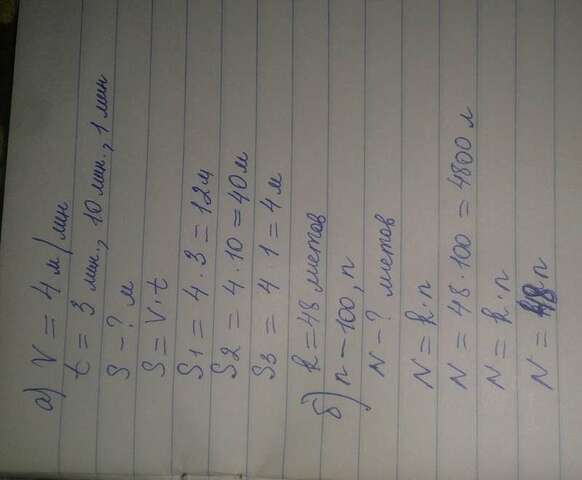 а) V = 4 м/мин
t = 3 мин., 10 мин., 1 мин
S - ? м
S = V · t
S1 = 4 · 3 = 12 м
S2 = 4 · 10 = 40 м
S3 = 4 · 1 = 4 м
k = 48 листов
б) n - 100, n
N - ? листов
N = k · n
N = 48 · 100 = 4800 л
N = k · n
N = 48 n